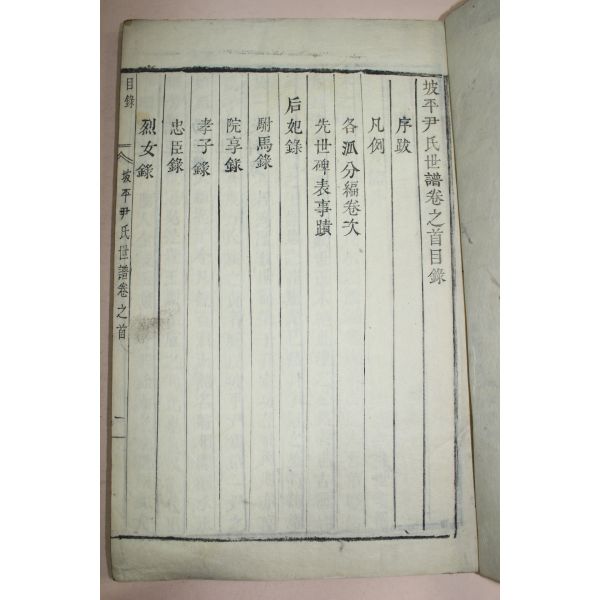 坡平尹氏世譜卷之首目錄
序跋
凡例
各派分編卷次
先世碑表事蹟
后妃錄
駙馬錄
院享錄
孝子錄
忠臣錄
烈女錄
目錄
坡平尹氏世譜卷之首
一